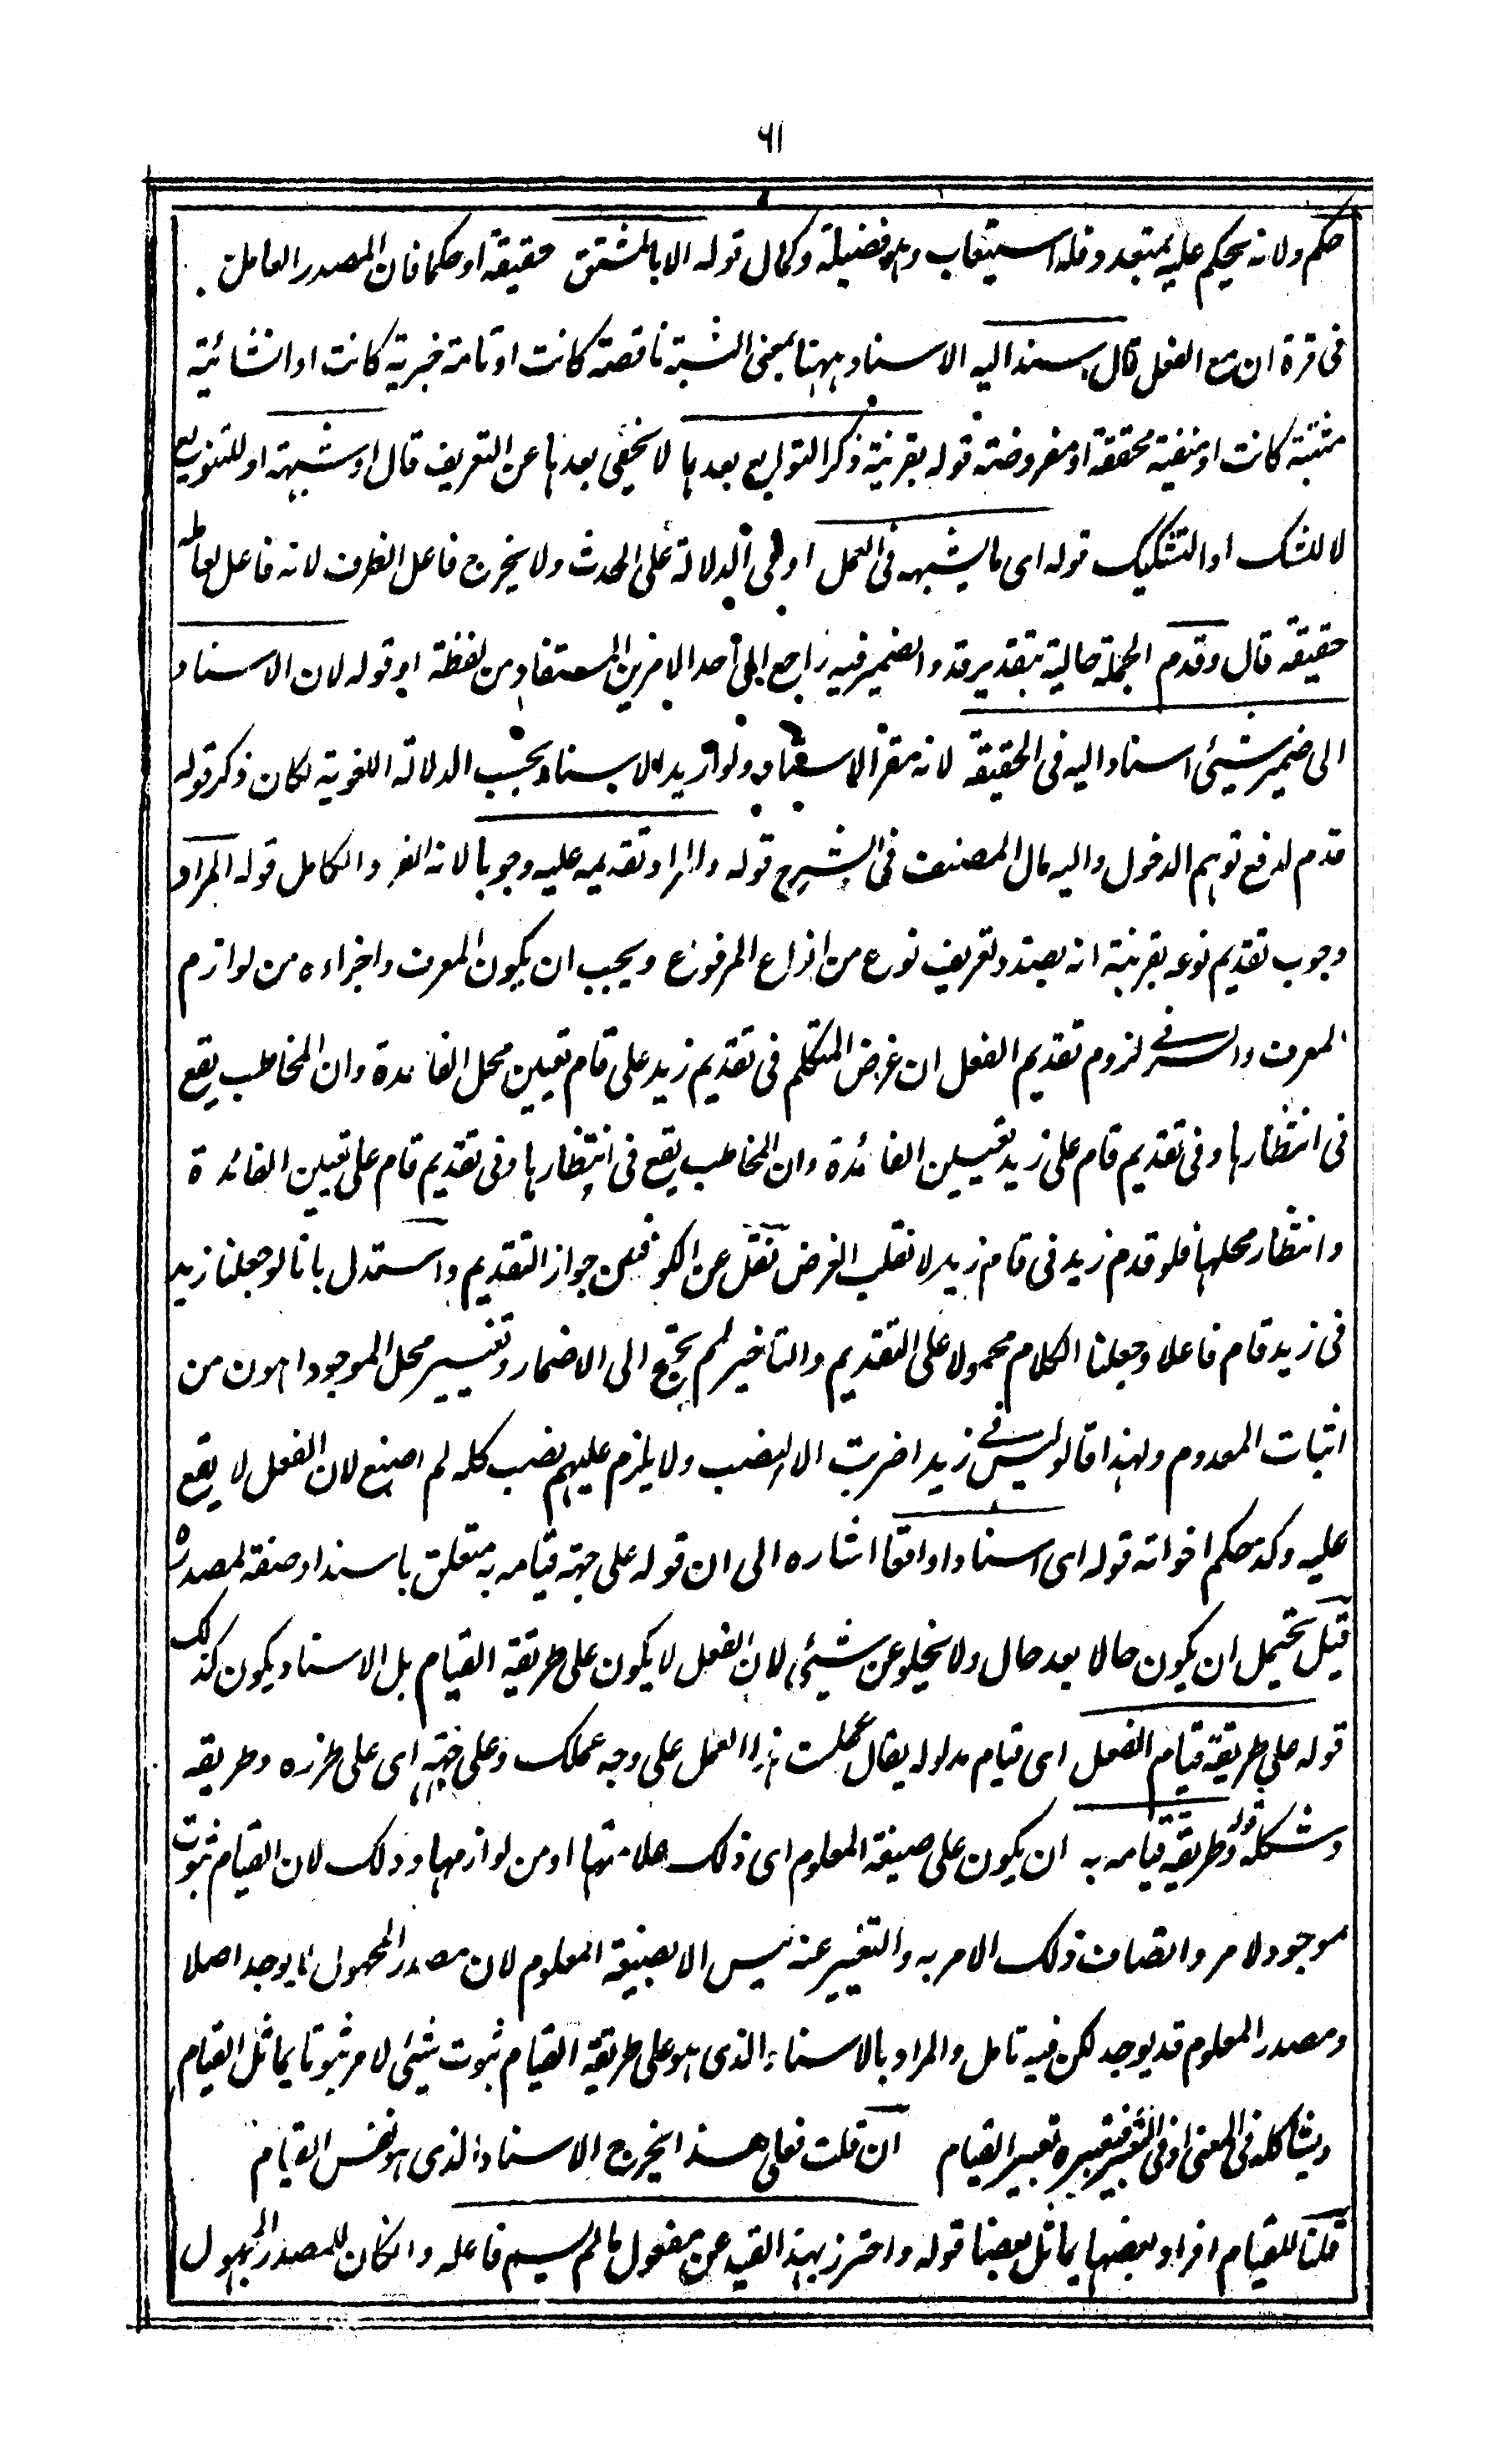 ٦١
حكم ولانه يحكم عليه بمتعدد فله استيعاب وهو فضيلة وكمال قوله الا بالمشتق حقيقة او حكما فان المصدر العامل
فى قوة ان مع الفعل قال يسند اليه الاسناد ههنا بمعنى النسبة ناقصة كانت او تامة خبرية كانت او انشائية
مثبتة كانت او منفية محققة او مفروضة قوله بقرينة ذكر التوابع بعدها لا يخفى بعدها عن التعريف قال او شبهه او للتنويع
لا للشك او التشكيك قوله اى ما يشبهه فى العمل او فى الدلالة على الحدث ولا يخرج فاعل الظرف لانه فاعل لعامله
حقيقة قال وقدم الجملة حالية بتقدير قد والضمير فيه راجع الى احد الامرين المستفاد من لفظة او قوله لان الاسناد
الى ضمير شيئ اسناد اليه فى الحقيقة لانه مقر الاسناد ولو اريد الاسناد بحسب الدلالة اللغوية لكان ذكر قوله
قدم لدفع توهم الدخول واليه مال المصنف فى الشرح قوله والمراد تقديمه عليه وجوبا لانه الفرد الكامل قوله المراد
وجوب تقديم نوعه بقرينة انه بصدد تعريف نوع من انواع المرفوع ويجب ان يكون المعرف واجزاءه من لوازم
المعرف والسر فى لزوم تقديم الفعل ان غرض المتكلم فى تقديم زيد على قام تعيين محل الفائدة وان المخاطب يقع
فى انتظارها وفى تقديم قام على زيد تعيين الفائدة وان المخاطب يقع فى انتظارها وفى تقديم قام على تعيين الفائدة
وانتظار محلها فلو قدم زيد فى قام زيد لانقلب الغرض نقل عن الكوفيين جواز التقديم واستدل بانا لو جعلنا زيد
فى زيد قام فاعلا وجعلنا الكلام محمولا على التقديم والتاخير لم يحتج الى الاضمار وتغيير محل الموجود اهون من
اثبات المعدوم ولهذا قالوا ليس فى زيدا ضربت الا النصب ولا يلزم عليهم نصب كله لم اصنع لان الفعل لا يقع
عليه وكذا حكم اخواته قوله اى اسنادا واقعا اشاره الى ان قوله على جهة قيامه به متعلق باسند او صفة لمصدره
قيل يحتمل ان يكون حالا بعد حال ولا يخلو عن شيئ لان الفعل لا يكون على طريقة القيام بل الاسناد يكون كذلك
قوله على طريقة قيام الفعل اى قيام مدلوله يقال عملت هذا العمل على وجه عملك وعلى جهته اى على طرزه وطريقه
وشكله قوله وطريقة قيامه به ان يكون على صيغة المعلوم اى ذلك علامتها او من لوازمها وذلك لان القيام ثبوت
موجود لامر واتصاف ذلك الامر به والتعبير عنه ليس الا بصيغة المعلوم لان مصدر المجهول لا يوجد اصلا
ومصدر المعلوم قد يوجد لكن فيه تامل والمراد بالاسناد الذى هو على طريقة القيام ثبوت شيئى لامر ثبوتا يماثل القيام
ويشاكله فى المعنى او فى التعبير فتعبيره تعبير القيام ان قلت فعلى هذا يخرج الاسناد الذى هو نفس القيام
قلنا للقيام افراد بعضها يماثل بعضا قوله واحترز بهذا القيد عن مفعول ما لم يسم فاعله وان كان للمصدر المجهول